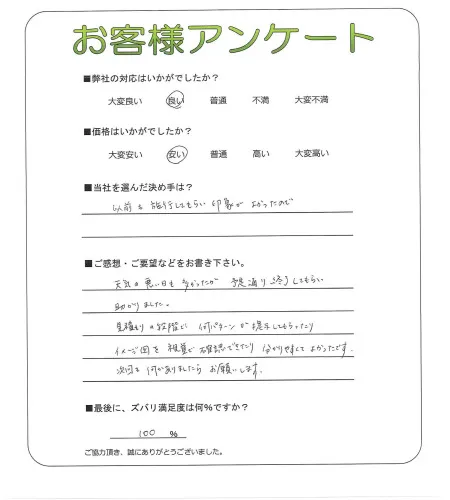 お客様アンケート
■弊社の対応はいかがでしたか？
大変良い 良い 普通 不満 大変不満
■価格はいかがでしたか？
大変安い 安い 普通 高い 大変高い
■当社を選んだ決め手は？
以前も施行してもらい 印象が よかったので
■ご感想・ご要望などをお書き下さい。
天気の悪い日も 多かったが 予定通り 終了してもらい
助かりました。
見積もりの段階で 何パターンか提示してもらったり
イメージ図を 視覚で 確認できたり 分かりやすくて よかったです。
次回も 何かありましたら お願いします。
■最後に、ズバリ満足度は何％ですか？
100 ％
ご協力頂き、誠にありがとうございました。